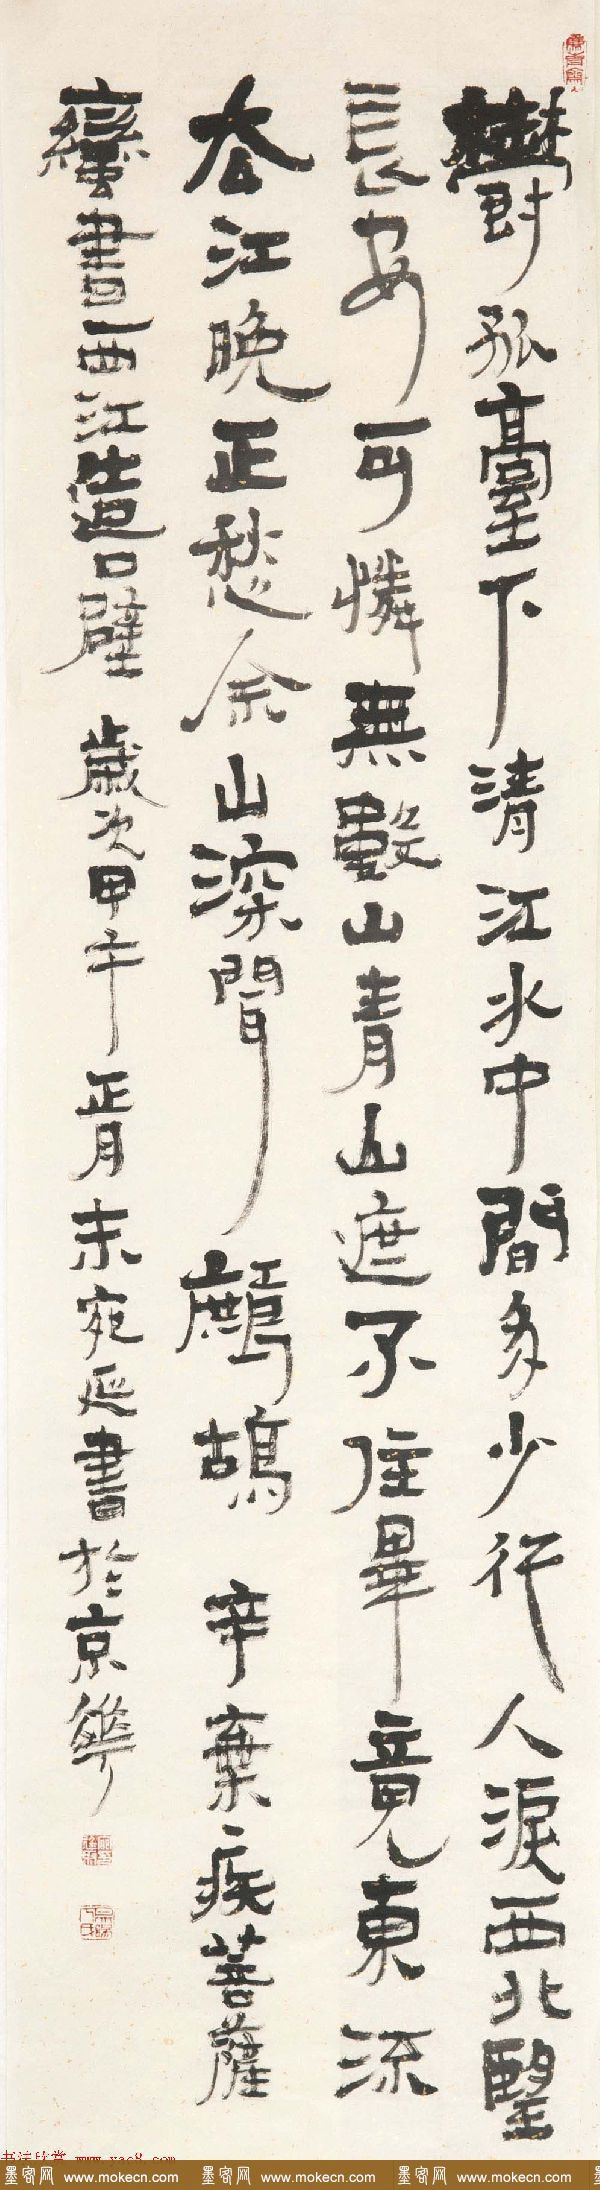 鬱孤臺下清江水中間多少行人淚西北望
長安可憐無數山青山遮不住畢竟東流
去江晚正愁余山深聞鷓鴣 辛棄疾菩薩
蠻書西江造口壁 歲次甲午正月末宛延書於京華
墨客网 www.mokecn.com 墨客网 www.mokecn.com 墨客网 www.mokecn.com